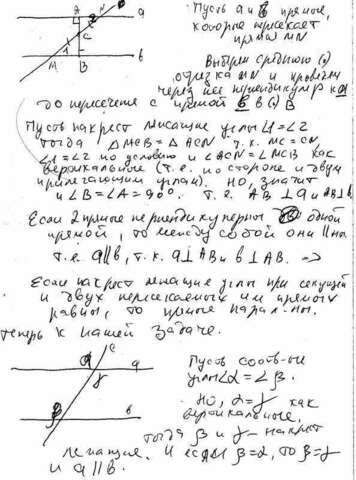 Пусть a и b прямые,
которые пересекает
прямая MN
Выберем середину (.)
отрезка MN и проведем
через нее перпендикуляр к a
до пересечения с прямой b в (.) B
Пусть накрест лежащие углы ∠1=∠2
тогда △MCB=△ACN т.к. MC=CN,
∠1=∠2 по условию и ∠ACN=∠MCB как
вертикальные (т.е. по стороне и двум
прилегающим углам). Но, значит
и ∠B=∠A=90°. т.е. AB⊥a и AB⊥b
Если 2 прямые перпендикулярны одной
прямой, то между собой они || на
т.е. a||b, т.к. a⊥AB и b⊥AB. =>
Если накрест лежащие углы при секущей
и двух пересекаемых им прямых
равны, то прямые парал-ны.
теперь к нашей задаче.
Пусть соотв-ые
углы ∠α=∠β.
Но, α=γ как
вертикальные,
тогда β и γ - накрест
лежащие. И если β=α, то β=γ
и a||b.
A N a
2
C
1
M B b
α c a
γ
β b